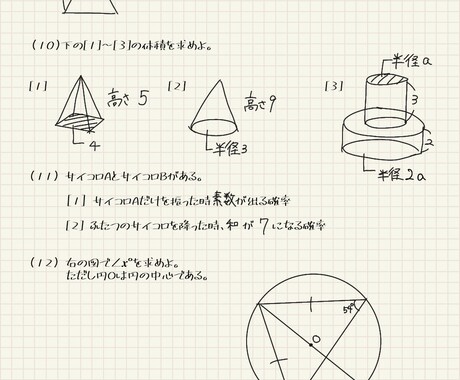 (10)下の[1]~[3]の体積を求めよ。
[1]
高さ5
4
[2]
高さ9
半径3
[3]
半径a
3
2
半径2a
(11) サイコロAとサイコロBがある。
[1] サイコロAだけを振った時素数が出る確率
[2] ふたつのサイコロを降った時、和が7になる確率
(12) 右の図で∠x°を求めよ。
ただし円Oは円の中心である。
54°
O